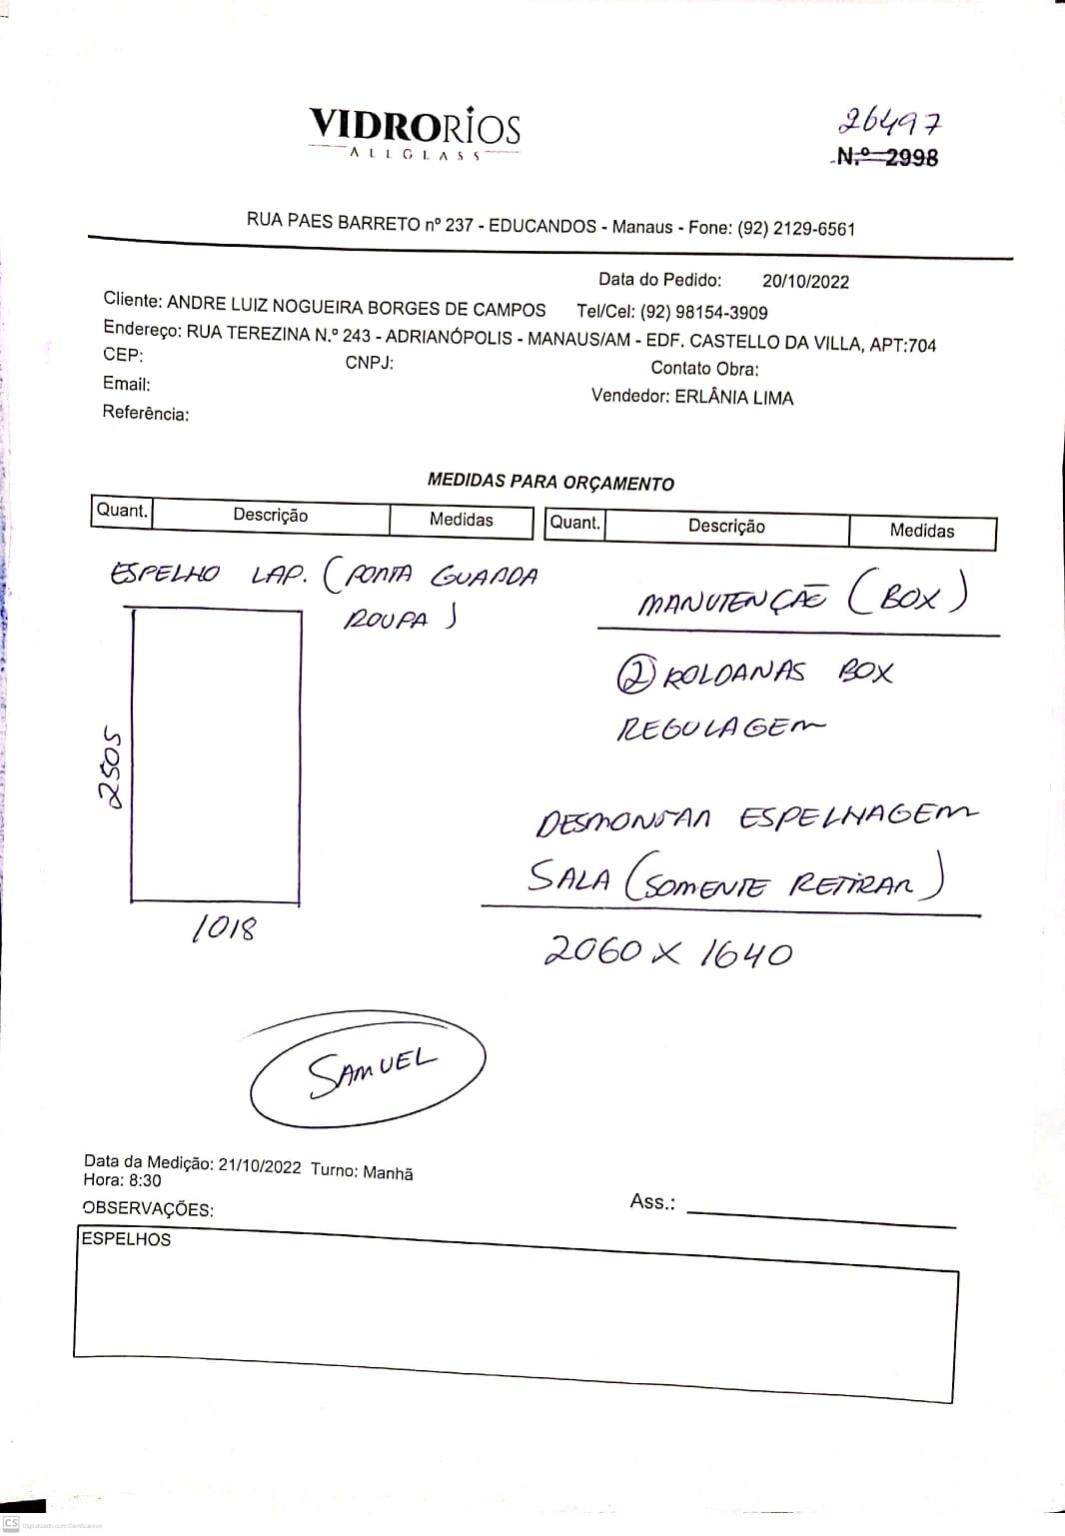 VIDRORIOS
ALLGLASS
26497
N.º 2998
RUA PAES BARRETO nº 237 - EDUCANDOS - Manaus - Fone: (92) 2129-6561
Data do Pedido: 20/10/2022
Cliente: ANDRE LUIZ NOGUEIRA BORGES DE CAMPOS Tel/Cel: (92) 98154-3909
Endereço: RUA TEREZINA N.º 243 - ADRIANÓPOLIS - MANAUS/AM - EDF. CASTELLO DA VILLA, APT:704
CEP: CNPJ: Contato Obra:
Email: Vendedor: ERLÂNIA LIMA
Referência:
MEDIDAS PARA ORÇAMENTO
Quant. Descrição Medidas Quant. Descrição Medidas
ESPELHO LAP. (PORTA GUARDA
ROUPA)
2505
1018
MANUTENÇÃO (BOX)
2 ROLDANAS BOX
REGULAGEM
DESMONTAR ESPELHAGEM
SALA (SOMENTE RETIRAR)
2060 X 1640
SAMUEL
Data da Medição: 21/10/2022 Turno: Manhã
Hora: 8:30
Ass.:
OBSERVAÇÕES:
ESPELHOS
CS Digitalizado com CamScanner